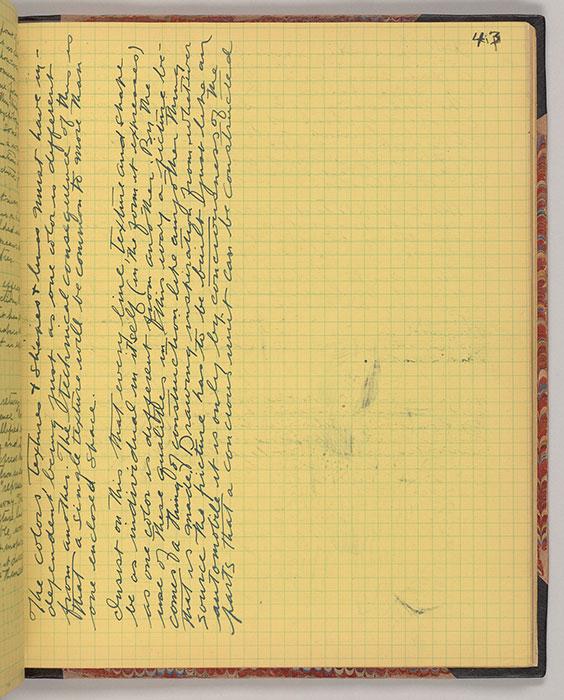 43
The colors, textures & shapes & lines must have in-
dependent, being just as one color is different
from another. The technical consequence of this is
that a single texture will be common to more than
one enclosed space.
Insist on this that every line, texture and shape
be as individual in itself (in the form it expresses)
as one color is different from another. By the
use of these qualities in this way a picture be-
comes a thing of construction like any other thing
that is made. Drawing inspiration from whatever
source the picture has to be built just like an
automobile & it is only by conciousness of the
parts that a concious unit can be constructed